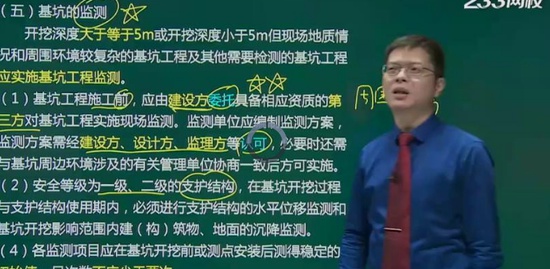 233网校
（五）基坑的监测
开挖深度大于等于5m或开挖深度小于5m但现场地质情
况和周围环境较复杂的基坑工程及其他需要检测的基坑工程
应实施基坑工程监测。
（1）基坑工程施工前，应由建设方委托具备相应资质的第
三方对基坑工程实施现场监测。监测单位应编制监测方案，
监测方案需经建设方、设计方、监理方等认可，必要时还需
与基坑周边环境涉及的有关管理单位协商一致后方可实施。
（2）安全等级为一级、二级的支护结构，在基坑开挖过程
与支护结构使用期内，必须进行支护结构的水平位移监测和
基坑开挖影响范围内建（构）筑物、地面的沉降监测。
（4）各监测项目应在基坑开挖前或测点安装后测得稳定的